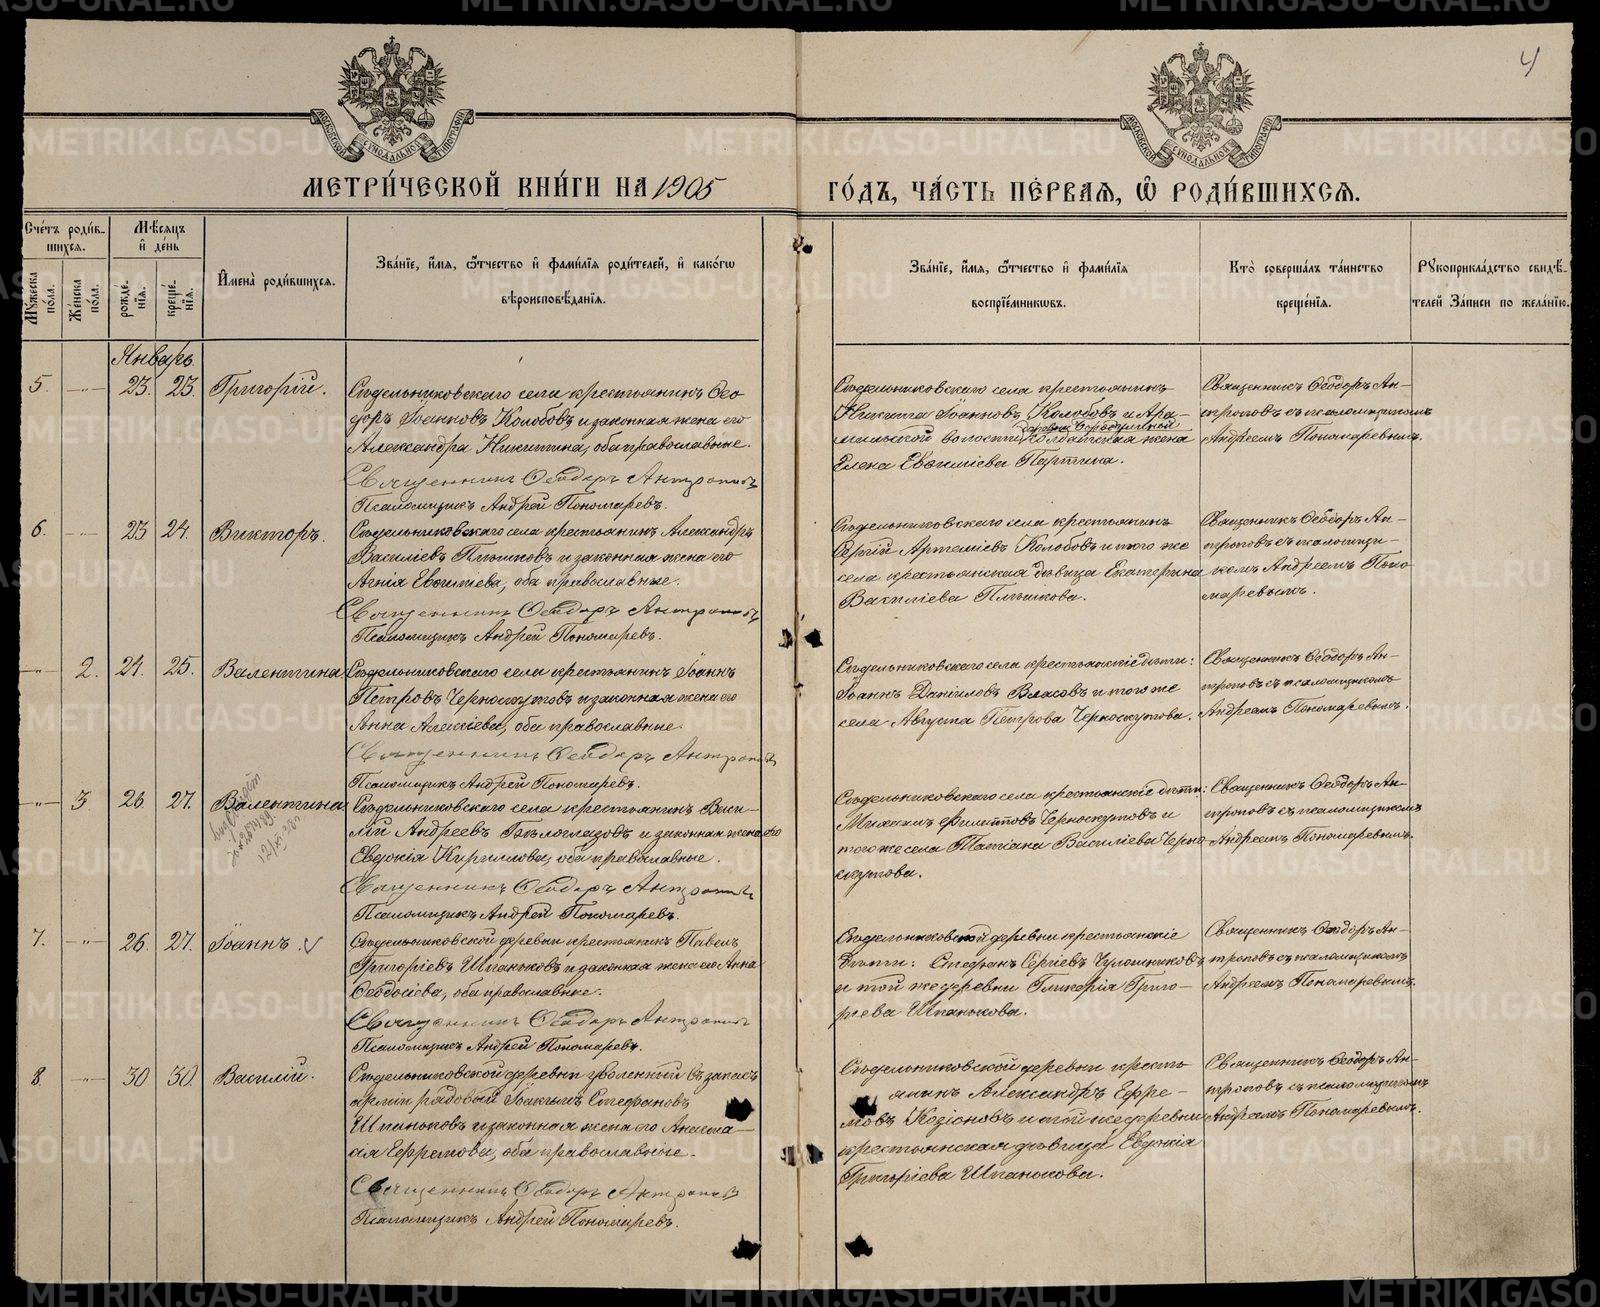 4
МЕТРИ́ЧЕСКОЙ КНИ́ГИ НА 1905
ГО́ДЪ, ЧА́СТЬ ПЕ́РВАЯ, Ѡ҆ РОДИ́ВШИХСЯ.
Сче́тъ роди́в-
шихся.
Мѣ́сяцъ
и҆ де́нь
И҆мена̀ роди́вшихся.
Зва́нїе, и҆́мя, ѻ҆́тчество и҆ фами́лїя роди́телей, и҆ како́гѡ
вѣроисповѣ́данїя.
Зва́нїе, и҆́мя, ѻ҆́тчество и҆ фами́лїя
воспрїе́мникѡвъ.
Кто̀ соверша́лъ та́инство
креще́нїя.
Рꙋкоприкла́дство свидѣ́-
телей за́писи по жела́нїю.
Мꙋ́жеска
по́ла.
Же́нска
по́ла.
рожде́-
нїя.
креще́-
нїя.
Январь.
5. —„— 23. 23. Григорій.
Сѣдельниковскаго села крестьянинъ Ѳео-
доръ Іоанновъ Колобовъ и законная жена его
Александра Никитина, оба православные.
Священникъ Ѳеодоръ Антроповъ
Псаломщикъ Андрей Пономаревъ.
Сѣдельниковскаго села крестьянинъ
Никита Іоанновъ Колобовъ и Ара-
мильской волости солдатская жена
Елена Евѳиміева Партина.
Священникъ Ѳеодоръ Ан-
троповъ съ псаломщикомъ
Андреемъ Пономаревымъ.
6. —„— 23 24. Викторъ.
Сѣдельниковскаго села крестьянинъ Александръ
Василіевъ Плѣшковъ и законная жена его
Агнія Евѳиміева, оба православные.
Священникъ Ѳеодоръ Антроповъ
Псаломщикъ Андрей Пономаревъ.
Сѣдельниковскаго села крестьянинъ
Сергій Артеміевъ Колобовъ и того же
села крестьянская дѣвица Екатерина
Василіева Плѣшкова.
Священникъ Ѳеодоръ Ан-
троповъ съ псаломщи-
комъ Андреемъ Поно-
маревымъ.
—„— 2. 24. 25. Валентина
Сѣдельниковскаго села крестьянинъ Іоаннъ
Петровъ Черноскутовъ и законная жена его
Анна Алексіева, оба православные.
Священникъ Ѳеодоръ Антроповъ
Псаломщикъ Андрей Пономаревъ.
Сѣдельниковскаго села крестьянскіе дѣти:
Іоаннъ Даніиловъ Власовъ и того же
села Августа Петрова Черноскутова.
Священникъ Ѳеодоръ Ан-
троповъ съ псаломщикомъ
Андреемъ Пономаревымъ.
—„— 3 26. 27. Валентина
Сѣдельниковскаго села крестьянинъ Васи-
лій Андреевъ Бѣлослудовъ и законная жена его
Евдокія Кириллова, оба православные.
Священникъ Ѳеодоръ Антроповъ
Псаломщикъ Андрей Пономаревъ.
Сѣдельниковскаго села крестьянскіе дѣти:
Михаилъ Филипповъ Черноскутовъ и
того же села Татіана Василіева Черно-
скутова.
Священникъ Ѳеодоръ Ан-
троповъ съ псаломщикомъ
Андреемъ Пономаревымъ.
7. —„— 26. 27. Іоаннъ.
Сѣдельниковской деревни крестьянинъ Павелъ
Григоріевъ Шпаньковъ и законная жена его Анна
Ѳеодосіева, оба православные.
Священникъ Ѳеодоръ Антроповъ
Псаломщикъ Андрей Пономаревъ.
Сѣдельниковской деревни крестьянскіе
дѣти: Стефанъ Сергіевъ Чулошниковъ
и той же деревни Гликерія Григо-
ріева Шпанькова.
Священникъ Ѳеодоръ Ан-
троповъ съ псаломщикомъ
Андреемъ Пономаревымъ.
8. —„— 30 30. Василій.
Сѣдельниковской деревни уволенный въ запасъ
арміи рядовый Іоакимъ Стефановъ
Шпаньковъ и законная жена его Анаста-
сія Ефремова, оба православные.
Священникъ Ѳеодоръ Антроповъ
Псаломщикъ Андрей Пономаревъ.
Сѣдельниковской деревни кресть-
янинъ Александръ Ефре-
мовъ Козіоновъ и той же деревни
крестьянская дѣвица Евдокія
Григоріева Шпанькова.
Священникъ Ѳеодоръ Ан-
троповъ съ псаломщикомъ
Андреемъ Пономаревымъ.
METRIKI.GASO-URAL.RU